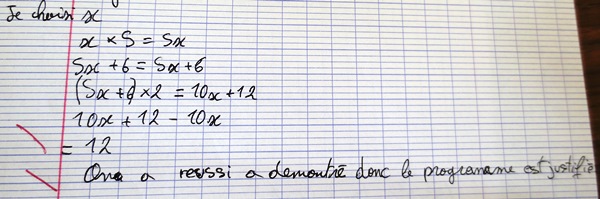 Je choisi x
x × 5 = 5x
5x + 6 = 5x + 6
(5x + 6) × 2 = 10x + 12
10x + 12 - 10x
= 12
On a reussi a demontré donc le programame est justifié